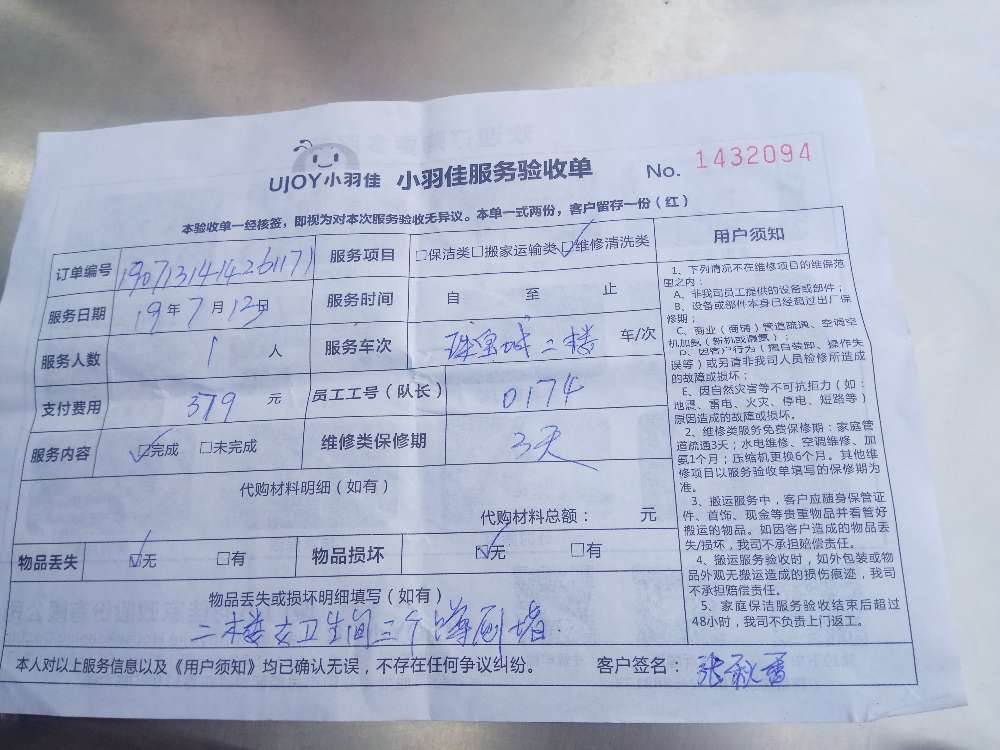 UJOY小羽佳 小羽佳服务验收单 No. 1432094
本验收单一经核签，即视为对本次服务验收无异议。本单一式两份，客户留存一份（红）
订单编号 1907131414261171 服务项目 □保洁类□搬家运输类☑维修清洗类
服务日期 19年7月12日 服务时间 自 至 止
服务人数 1 人 服务车次 珠宝城二楼 车/次
支付费用 379 元 员工工号（队长） 0174
服务内容 ☑完成 □未完成 维修类保修期 3天
代购材料明细（如有）
代购材料总额： 元
物品丢失 ☑无 □有 物品损坏 ☑无 □有
物品丢失或损坏明细填写（如有）
二楼女卫生间三个蹲厕堵.
本人对以上服务信息以及《用户须知》均已确认无误，不存在任何争议纠纷。 客户签名：张秋香
用户须知
1、下列情况不在维修项目的维保范
围之内：
A、非我司员工提供的设备或部件；
B、设备或部件本身已经超过出厂保
修期；
C、商业（商铺）管道疏通、空调空
机加氨（新机或漏氨）；
D、因客户行为（擅自装卸、操作失
误等）或另请非我司人员检修所造成
的故障或损坏；
E、因自然灾害等不可抗拒力（如：
地震、雷电、火灾、停电、短路等）
原因造成的故障或损坏。
2、维修类服务免费保修期：家庭管
道疏通3天；水电维修、空调维修、加
氨1个月；压缩机更换6个月。其他维
修项目以服务验收单填写的保修期为
准。
3、搬运服务中，客户应随身保管证
件、首饰、现金等贵重物品并看管好
搬运的物品。如因客户造成的物品丢
失/损坏，我司不承担赔偿责任。
4、搬运服务验收时，如外包装或物
品外观无搬运造成的损伤痕迹，我司
不承担赔偿责任。
5、家庭保洁服务验收结束后超过
48小时，我司不负责上门返工。